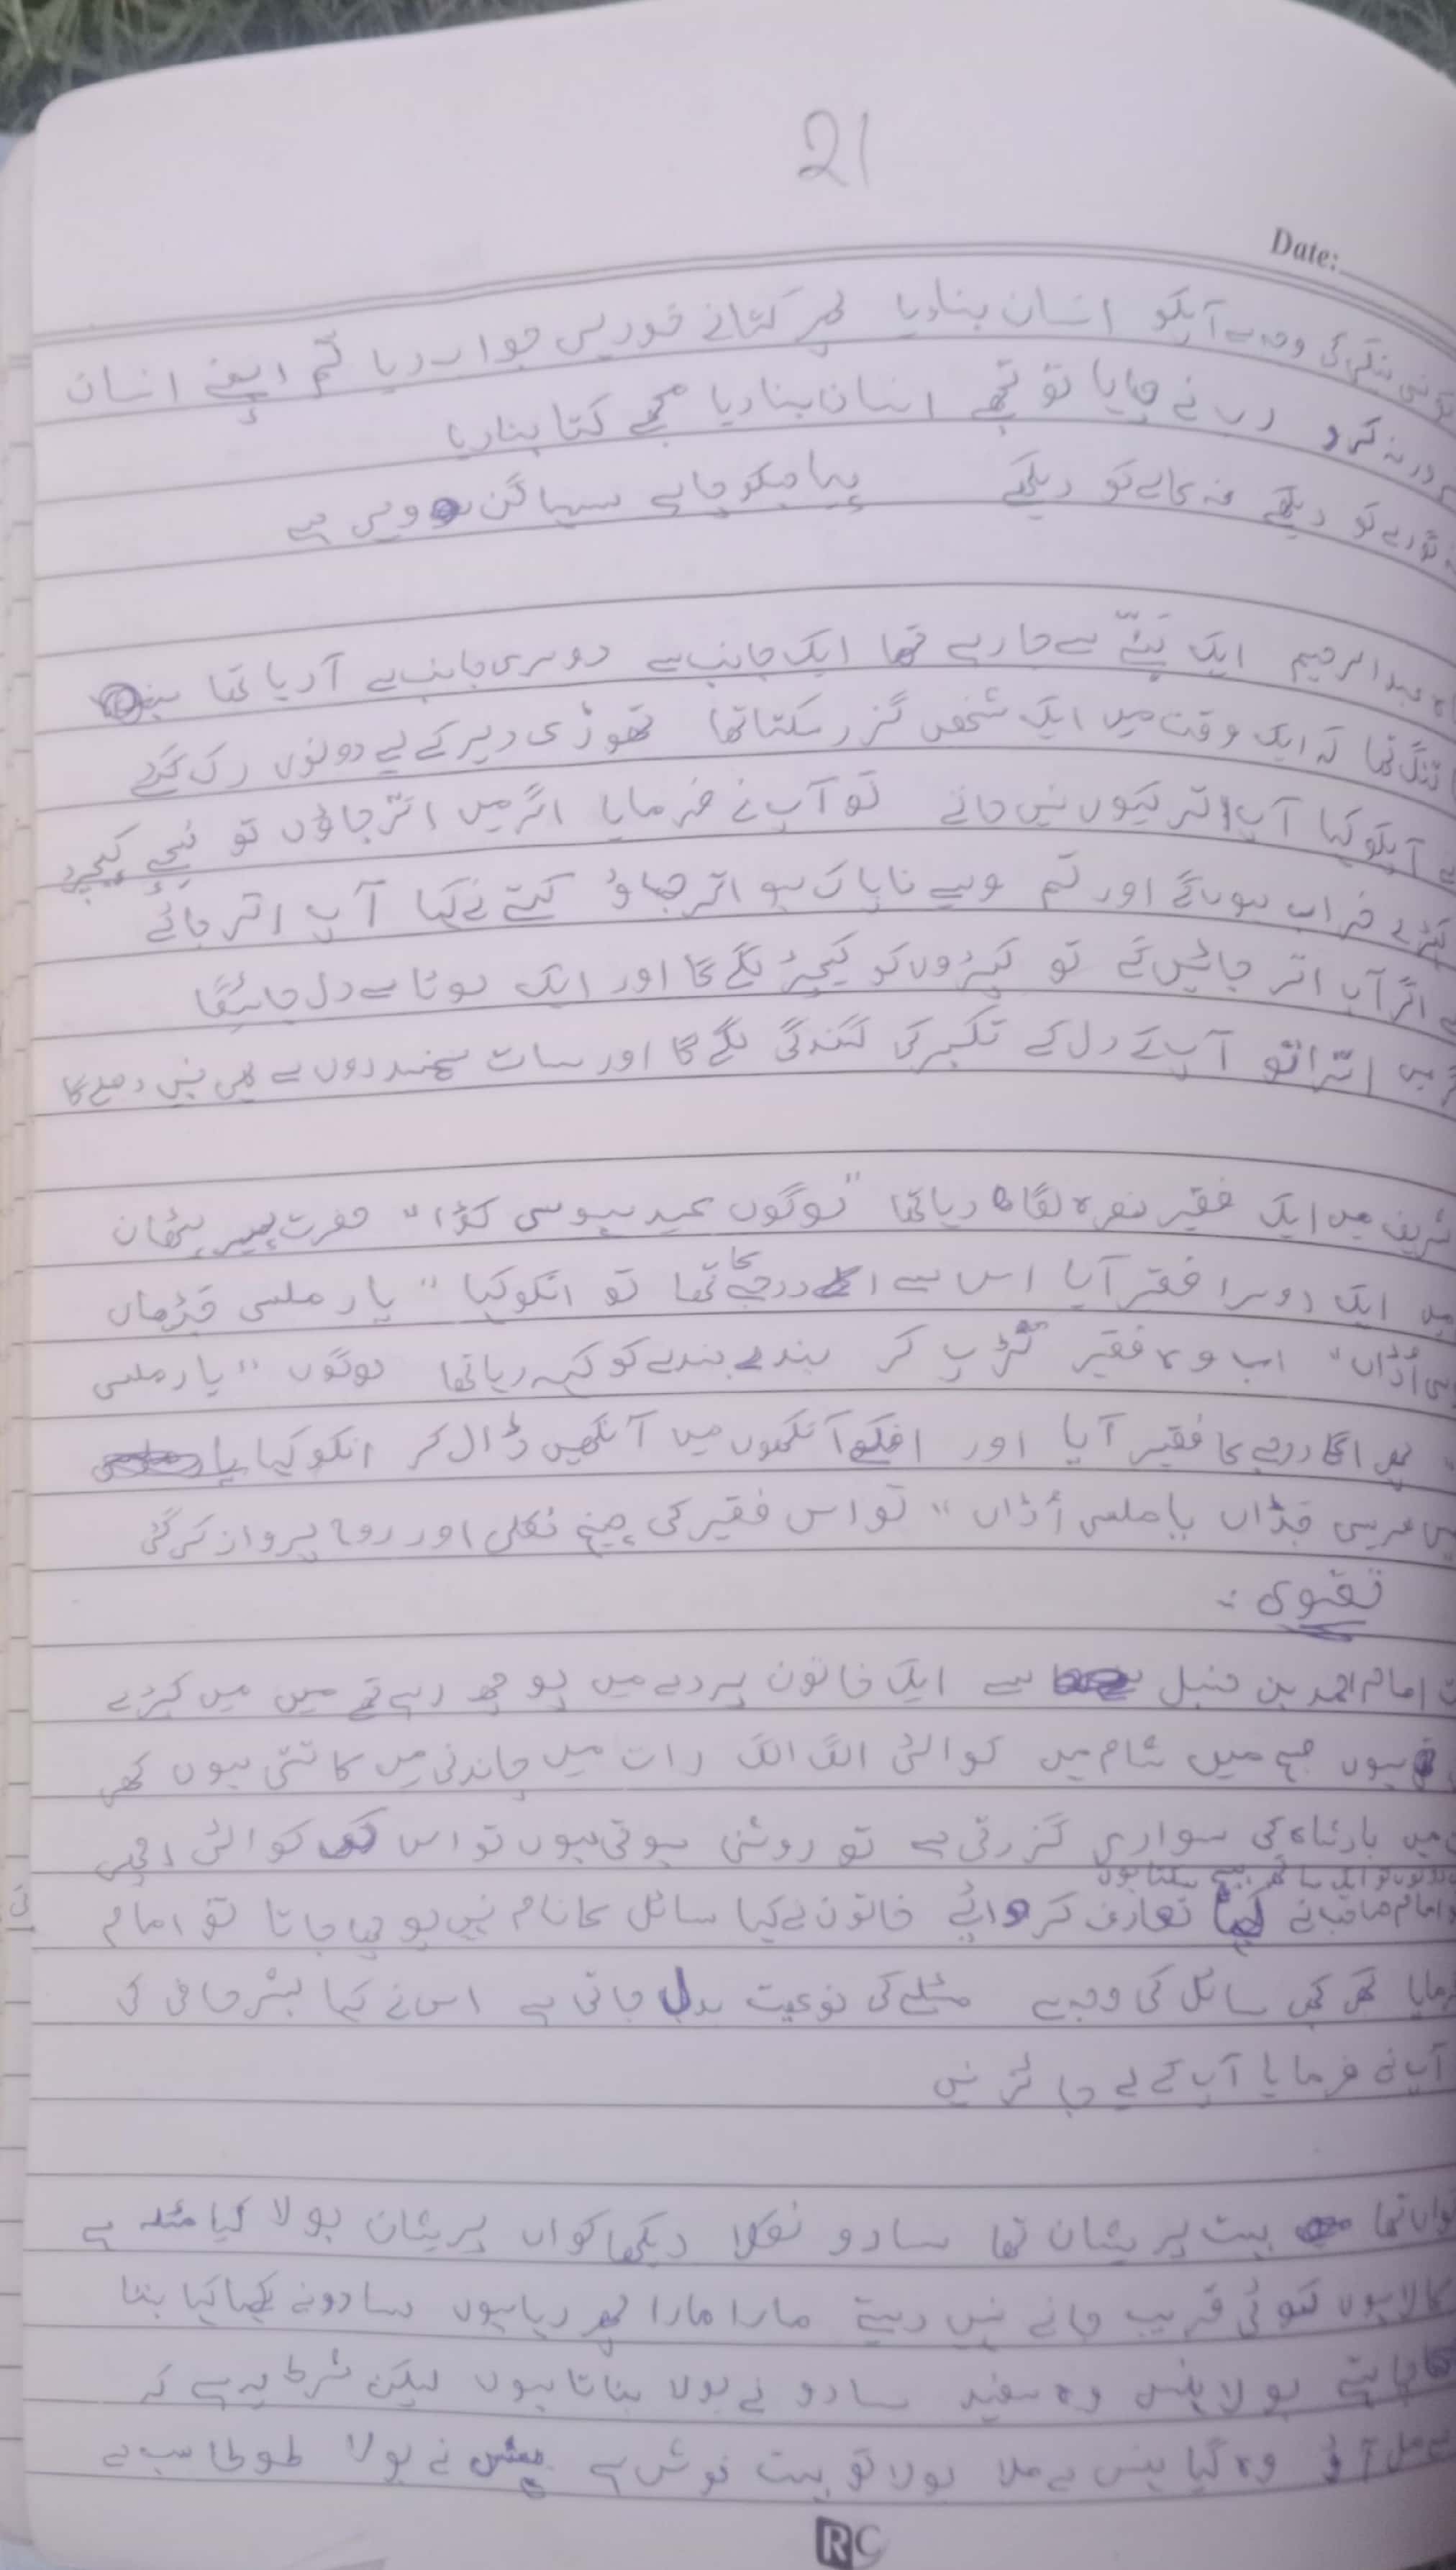 21
Date:
کی وجہ سے آپکو انسان بنادیا پھر کتا نے خود ہی جواب دیا تم اپنے انسان
نہ کرو رب نے چاہا تو تجھے انسان بنادیا مجھے کتا بنادیا
گورے کو دیکھے نہ کالے کو دیکھے پیا جسکو چاہے سہاگن وہی ہے
عبدالرحیم ایک پنّے سے جارہے تھا ایک جانب سے دوسری جانب سے آرہا تھا
تنگ تھا کہ ایک وقت میں ایک شخص گزر سکتا تھا تھوڑی دیر کے لیے دونوں رک گئے
آپکو کہا آپ اتر کیوں نہیں جاتے تو آپ نے فرمایا اگر میں اتر جاؤں تو نیچے کیچڑ
کپڑے خراب ہوں گے اور تم ویسے ناپاک ہو اتر جاؤ کتے نے کہا آپ اتر جائے
اگر آپ اتر جائیں گے تو کپڑوں کو کیچڑ لگے گا اور ایک لوٹا سے دل جائیگا
میں اترا تو آپ کے دل کے تکبر کی گندگی لگے گا اور سات سمندروں سے بھی نہیں دھلے گا
شریف میں ایک فقیر نعرہ لگا رہا تھا "لوگوں عید ہوسی کڈا" حضرت پیر پٹھان
میں ایک دوسرا فقیر آیا اس سے درجے کا تھا تو انکو کہا "یار ملسی قڈماں
اب وہ فقیر تڑپ کر بندے بندے کو کہہ رہا تھا لوگوں "یار ملسی
پھر اگلا درجے کا فقیر آیا اور انکے آنکھوں میں آنکھیں ڈال کر انکو کہا
مریسی قڈاں یا ملسی اڈاں" تو اس فقیر کی چیخ نکلی اور روح پرواز کرگئی
تقوی :
امام احمد بن حنبل سے ایک خاتون پردے میں پوچھ رہے تھے میں میں کپڑے
ہوں جہ میں شام میں کوالٹی الگ الگ رات میں چاندنی میں کاتتی ہوں کھر
میں بادشاہ کی سواری گزرتی ہے تو روشنی ہوتی ہوں تو اس کوالٹی اچھی
دونوں کو ایک ساتھ بیچ سکتا ہوں
امام صاحب نے تعارف کروائے خاتون نے کہا سائل کا نام نہیں پوچھا جاتا تو امام
کبھی کبھی سائل کی وجہ سے مسئلے کی نوعیت بدل جاتی ہے اس نے کہا بشر حافی کی
آپ نے فرمایا آپ کے لیے جائز نہیں
تھا بہت پریشان تھا سادو نکلا دیکھا کواں پریشان بولا کیا مسئلہ ہے
کالا ہوں کوئی قریب جانے نہیں دیتے مارا مارا پھر رہا ہوں سادو نے کہا کیا بننا
چاہتے بولا ہنس وہ سفید سادو نے بولا بناتا ہوں لیکن شرط یہ ہے کہ
مل آؤ وہ گیا ہنس سے ملا بولا تو بہت خوش ہے ہنس نے بولا طوطا سب سے
RC